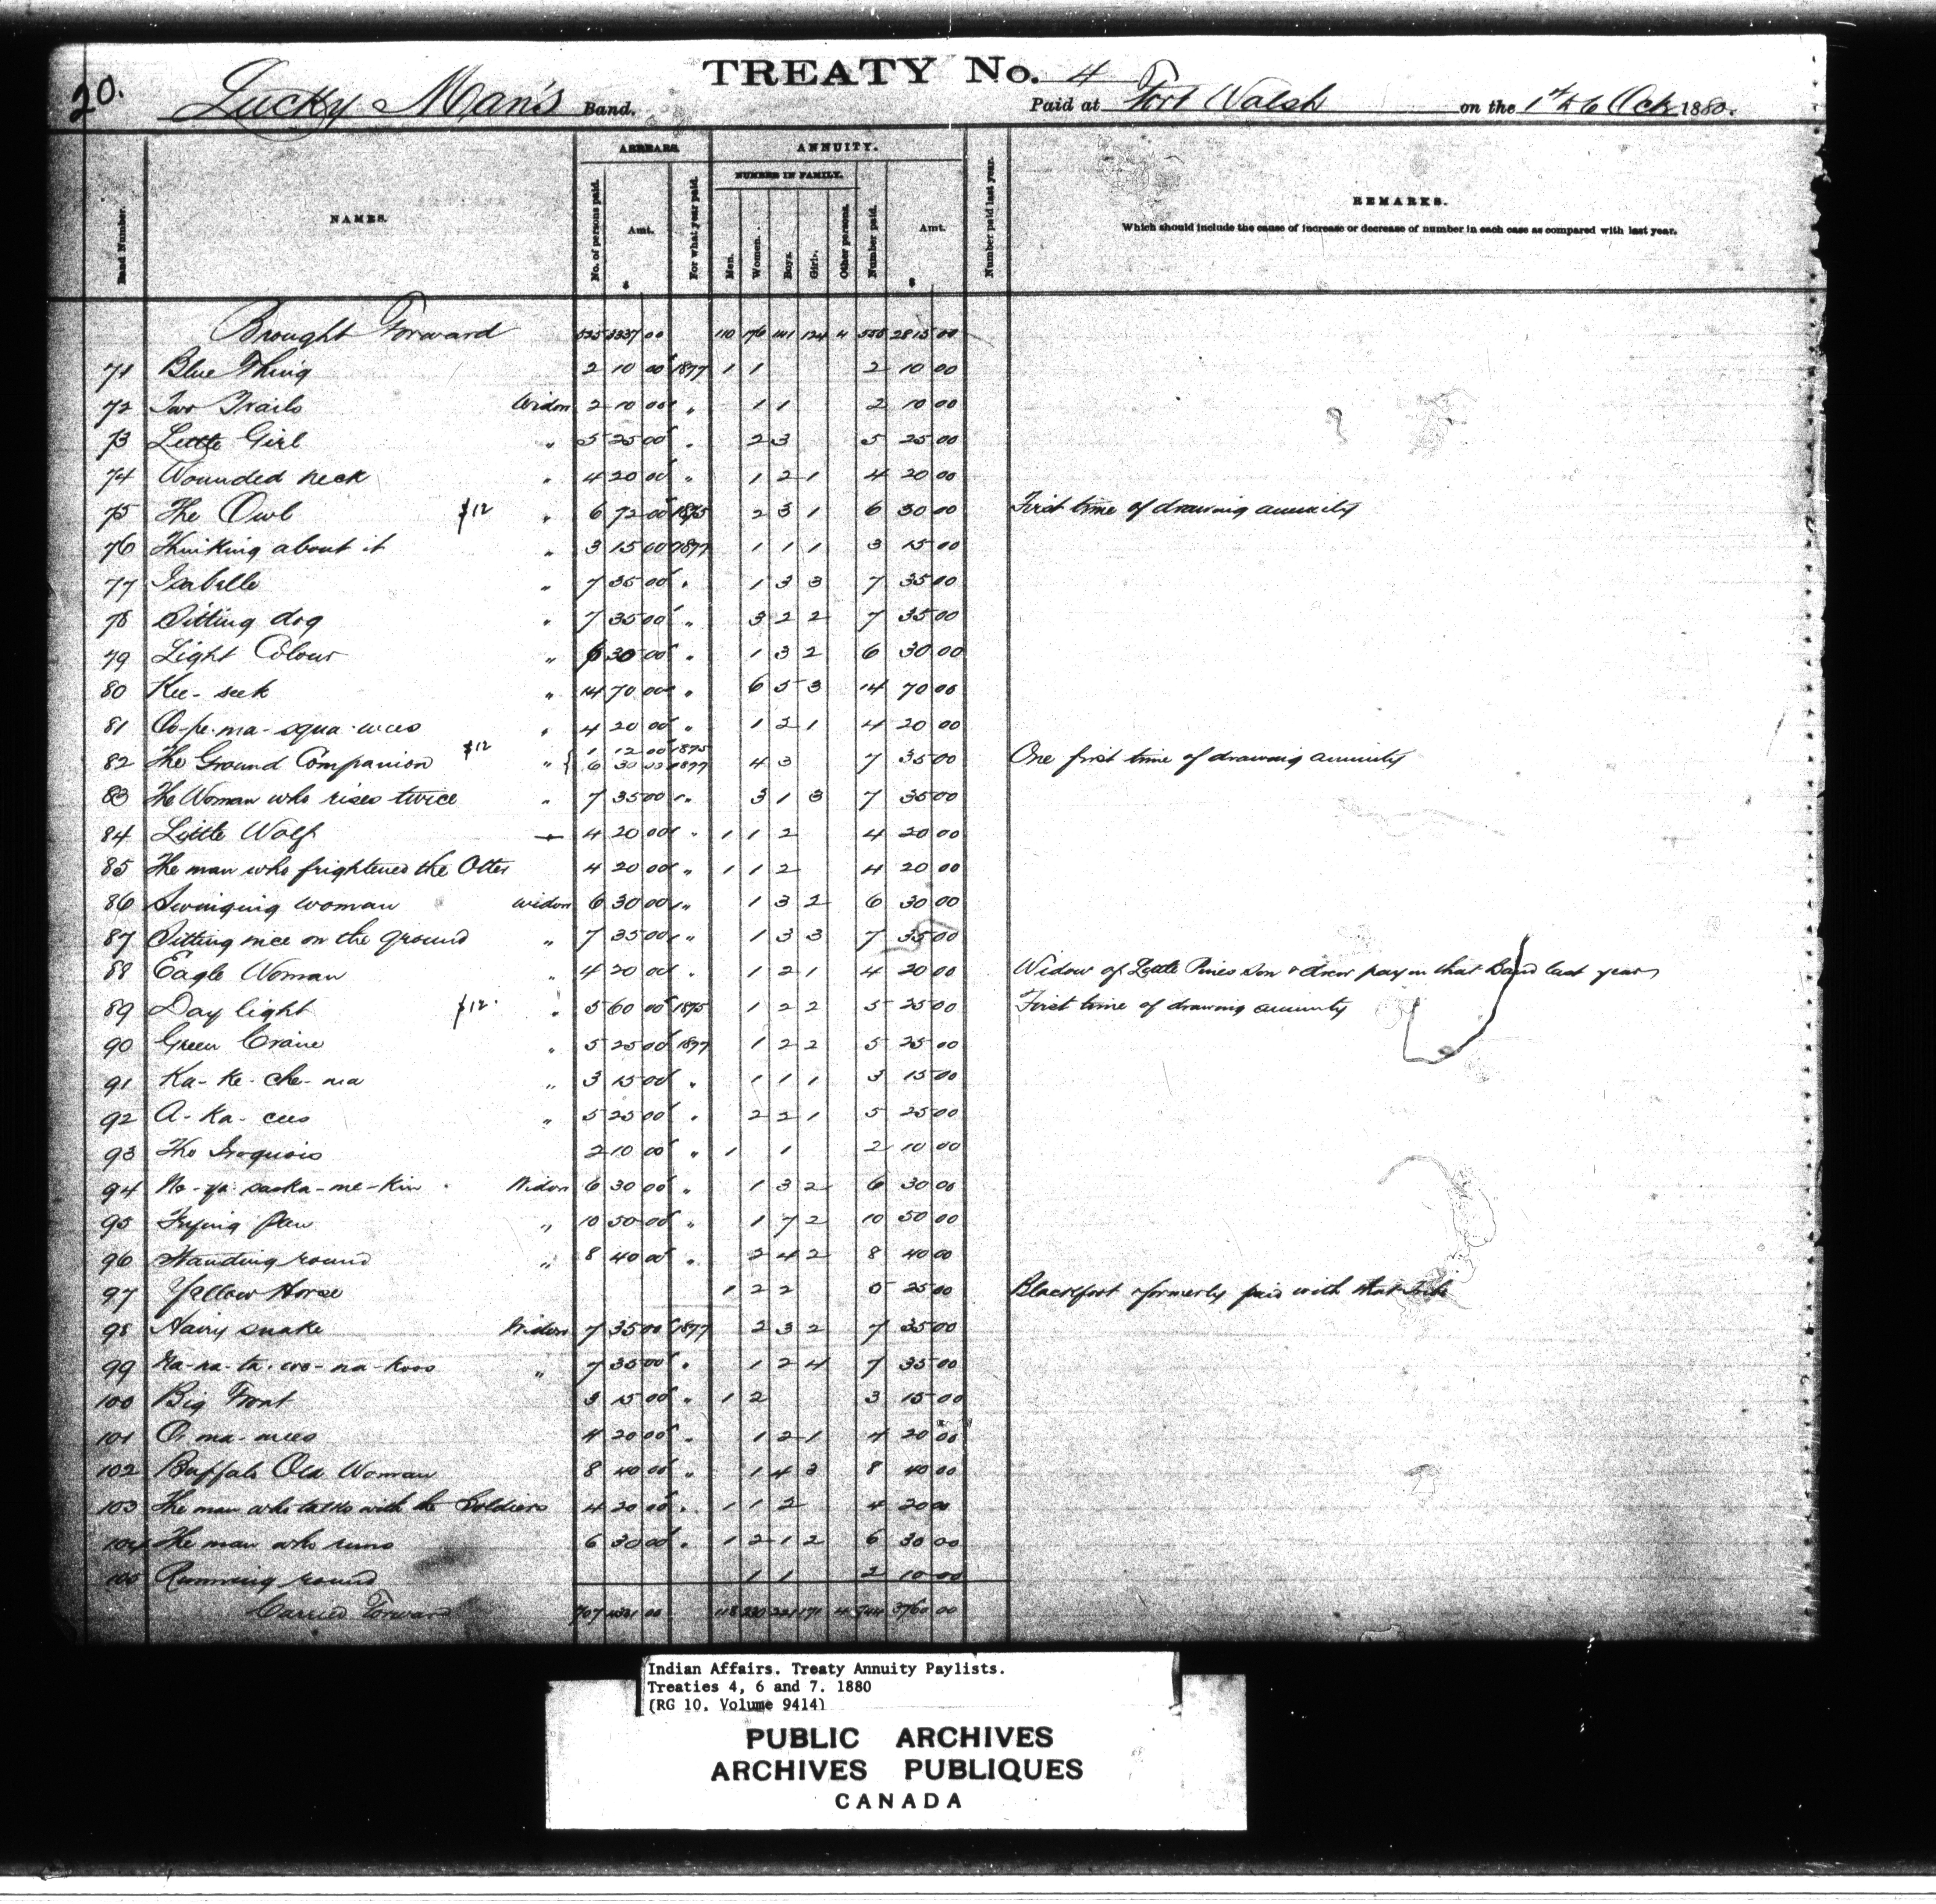 20.
TREATY No. 4
Lucky Man's Band. Paid at Fort Walsh on the 1st to 6 Oct 1880.
ARREARS. ANNUITY.
NUMBER IN FAMILY.
Band Number. NAMES. No. of persons paid. Amt. $ For what year paid. Men. Women. Boys. Girls. Other persons. Number paid. Amt. $ Number paid last year. REMARKS.
Which should include the cause of increase or decrease of number in each case as compared with last year.
Brought Forward 525 3337 00 110 176 141 124 4 555 2815 00
71 Blue Thing 2 10 00 1877 1 1 2 10 00
72 Two Trails Widow 2 10 00 " 1 1 2 10 00
73 Little Girl " 5 25 00 " 2 3 5 25 00
74 Wounded neck " 4 20 00 " 1 2 1 4 20 00
75 The Owl $12 " 6 72 00 1875 2 3 1 6 30 00 First time of drawing annuity
76 Thinking about it " 3 15 00 1877 1 1 1 3 15 00
77 Isabelle " 7 35 00 " 1 3 3 7 35 00
78 Sitting dog " 7 35 00 " 3 2 2 7 35 00
79 Light Colour " 6 30 00 " 1 3 2 6 30 00
80 Kee-seek " 14 70 00 " 6 5 3 14 70 00
81 " 4 20 00 " 1 2 1 4 20 00
82 The Ground Companion $12 " { 1 12 00 1875
6 30 00 1877 4 3 7 35 00 One first time of drawing annuity
83 The Woman who rises twice " 7 35 00 " 3 1 3 7 35 00
84 Little Wolf 4 20 00 " 1 1 2 4 20 00
85 The man who frightened the Otter 4 20 00 " 1 1 2 4 20 00
86 Swinging woman Widow 6 30 00 " 1 3 2 6 30 00
87 Sitting nice on the ground " 7 35 00 " 1 3 3 7 35 00
88 Eagle Woman " 4 20 00 " 1 2 1 4 20 00 Widow of Little Pines son & drew pay in that Band last year
89 Day light $12 " 5 60 00 1875 1 2 2 5 25 00 First time of drawing annuity
90 Green Craine " 5 25 00 1877 1 2 2 5 25 00
91 Ka-ke-che-na " 3 15 00 " 1 1 1 3 15 00
92 A-ka-cees " 5 25 00 " 2 2 1 5 25 00
93 The Iroquois 2 10 00 " 1 1 2 10 00
94 Widow 6 30 00 " 1 3 2 6 30 00
95 Frying pan " 10 50 00 " 1 7 2 10 50 00
96 Standing round " 8 40 00 " 2 4 2 8 40 00
97 Yellow Horse 1 2 2 5 25 00 Blackfoot & formerly paid with that Tribe
98 Hairy snake Widow 7 35 00 1877 2 3 2 7 35 00
99 " 7 35 00 " 1 2 4 7 35 00
100 Big Front 3 15 00 " 1 2 3 15 00
101 4 20 00 " 1 2 1 4 20 00
102 Buffalo Old Woman 8 40 00 " 1 4 3 8 40 00
103 The man who talks with the Soldiers 4 20 00 " 1 1 2 4 20 00
104 The man who runs 6 30 00 " 1 2 1 2 6 30 00
105 Running round 1 1 2 10 00
Carried Forward 707 00 118 230 221 171 4 744 3760 00
Indian Affairs. Treaty Annuity Paylists.
Treaties 4, 6 and 7. 1880
(RG 10, Volume 9414)
PUBLIC ARCHIVES
ARCHIVES PUBLIQUES
CANADA